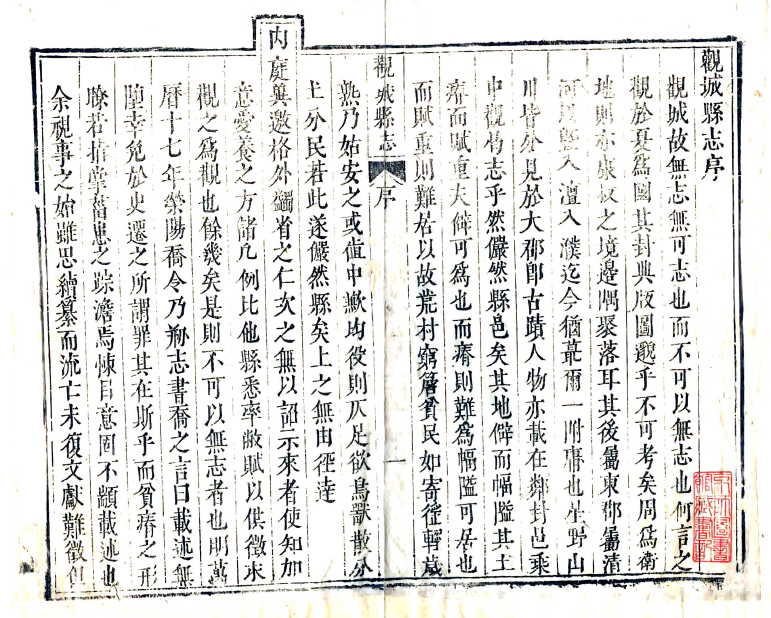 觀城縣志序
觀城故無志無可志也而不可以無志也何言之
觀於夏為國其封典版圖邈乎不可考矣周為衛
地則亦康叔之境邊隅聚落耳其後屬東郡屬清
河既暨入澶入濮迄今猶蕞爾一附庸也星野山
川皆分見於大郡即古蹟人物亦載在鄰封邑乘
中觀何志乎然儼然縣邑矣其地僻而幅隘其土
瘠而賦重夫僻可為也而瘠則難為幅隘可居也
而賦重則難居以故荒村窮簷貧民如寄徑輕歲
觀城縣志
序
一
熟乃始安之或值中歉均役則仄足欲鳥獸散分
土分民若此遂儼然縣矣上之無由徑達
內庭冀邀格外蠲省之仁次之無以詔示來者使知加
意愛養之方儲凡例比他縣悉率敝賦以供徵求
觀之為觀也餘幾矣是則不可以無志者也明萬
曆十七年滎陽喬令乃刱志書喬之言曰載述無
陋幸免於史遷之所謂罪其在斯乎而貧瘠之形
瞭若指掌舊患之踪澹焉悚目意固不顓載述也
余視事之始雖思續纂而流亡未復文獻難徵